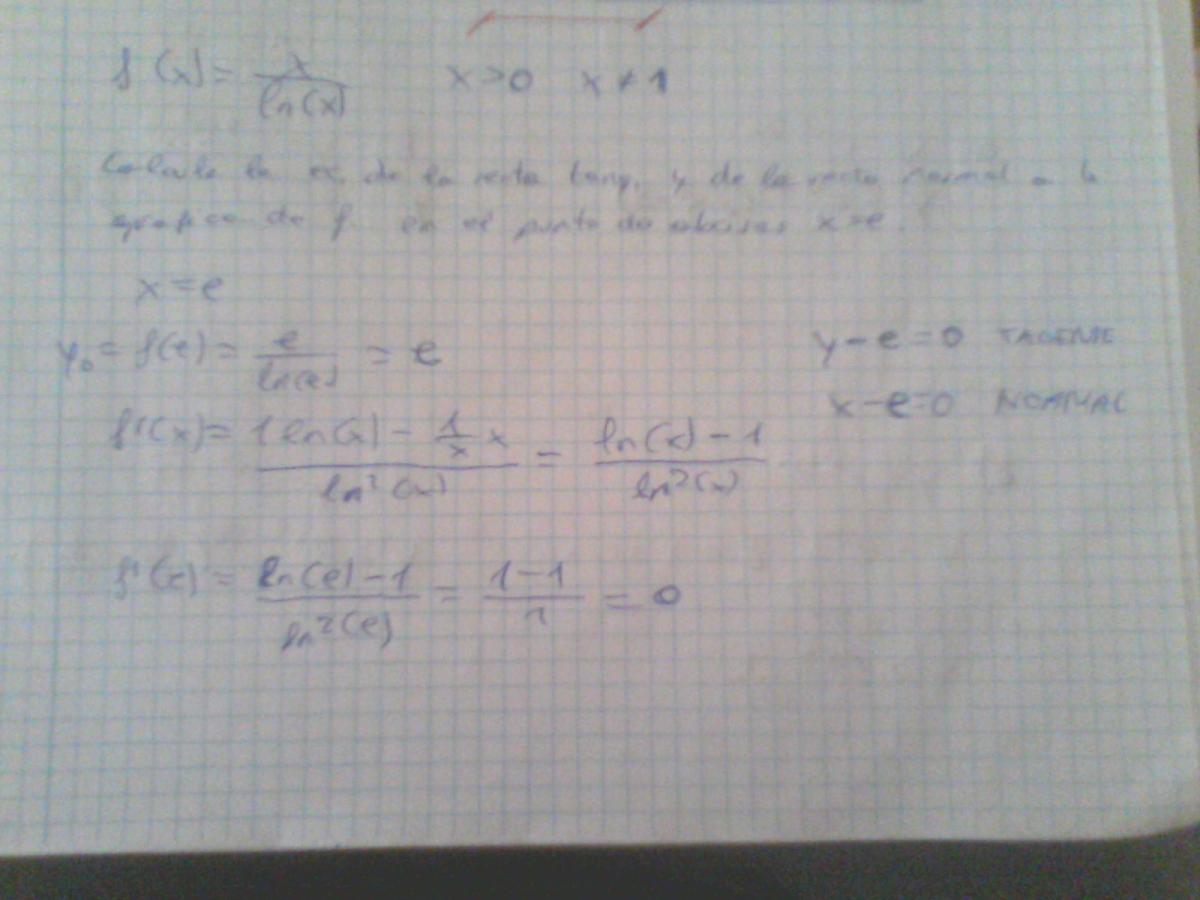 f(x) = x / ln(x) x > 0 x ≠ 1
Calcule la ec. de la recta tang. y de la recta normal a la
grafica de f en el punto de abcisas x = e.
x = e
y₀ = f(e) = e / ln(e) = e
y - e = 0 TAGENTE
x - e = 0 NORMAL
f'(x) = (1 ln(x) - 1/x x) / ln²(x) = (ln(x) - 1) / ln²(x)
f'(e) = (ln(e) - 1) / ln²(e) = (1 - 1) / 1 = 0